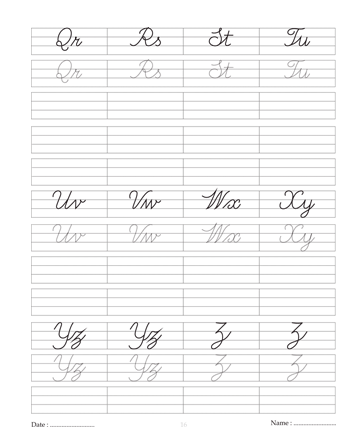 Qr Rs St Tu
Qr Rs St Tu
Uv Vw Wx Xy
Uv Vw Wx Xy
Yz Yz Z Z
Yz Yz Z Z
Date : ........................ 16 Name : ........................